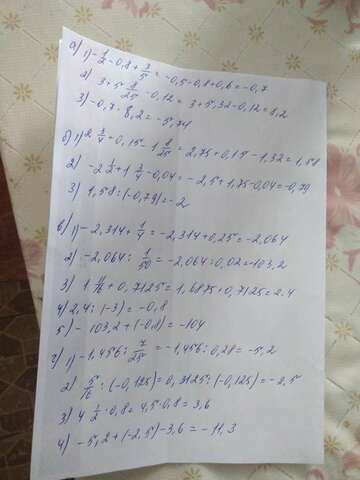 а) 1) -1/2 - 0,8 + 3/5 = -0,5 - 0,8 + 0,6 = -0,7
2) 3 + 5 8/25 - 0,12 = 3 + 5,32 - 0,12 = 8,2
3) -0,7 · 8,2 = -5,74
б) 1) 2 3/4 + 0,15 - 1 8/25 = 2,75 + 0,15 - 1,32 = 1,58
2) -2 1/2 + 1 3/4 - 0,04 = -2,5 + 1,75 - 0,04 = -0,79
3) 1,58 : (-0,79) = -2
в) 1) -2,314 + 1/4 = -2,314 + 0,25 = -2,064
2) -2,064 : 1/50 = -2,064 : 0,02 = -103,2
3) 1 11/16 + 0,7125 = 1,6875 + 0,7125 = 2.4
4) 2,4 : (-3) = -0,8
5) -103,2 + (-0,8) = -104
г) 1) -1,456 : 7/25 = -1,456 : 0,28 = -5,2
2) 5/16 : (-0,125) = 0,3125 : (-0,125) = -2,5
3) 4 1/2 · 0,8 + 4,5 · 0,8 = 3,6
4) -5,2 + (-2,5) - 3,6 = -11,3